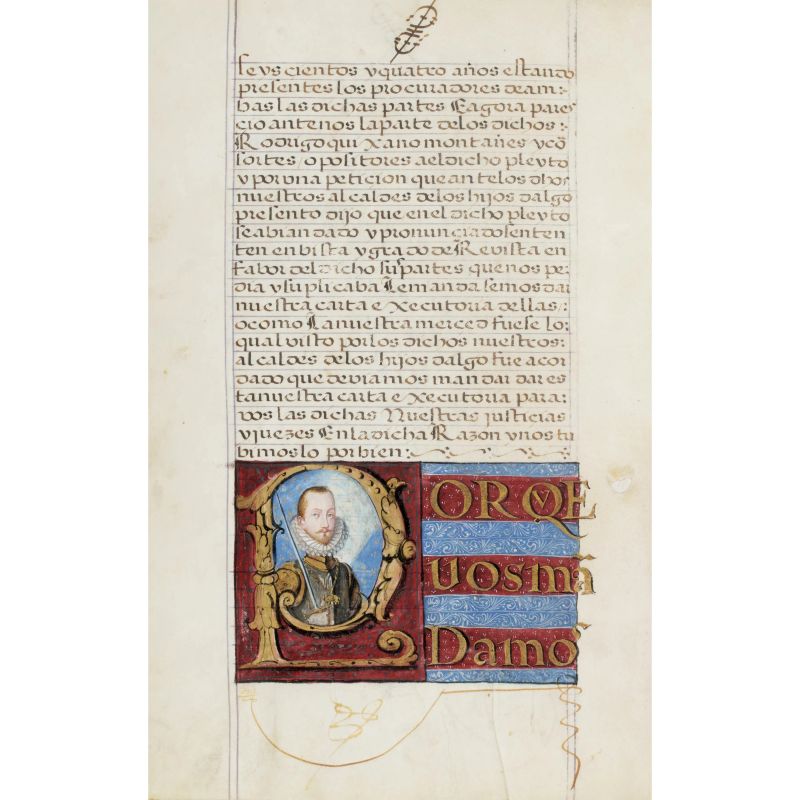 seys cientos y quatro años estando
presentes los procuradores de am:
bas las dichas partes E agora pares
cio ante nos la parte de los dichos :
Rodrigo quixano montañes y cõ
sortes / opositores a el dicho pleyto
y por una peticion que ante los dhos
nuestros alcaldes de los hijos dalgo
presento dijo que en el dicho pleyto
se abian dado y pronunciado senten
ten en bista y grado de Revista en
fabor del dicho sus partes que nos pe
dia y suplicaba Le mandasemos dar
nuestra carta e xecutoria dellas :
o como La nuestra merced fuese lo:
qual visto por los dichos nuestros:
alcaldes de los hijos dalgo fue acor
dado que deviamos mandar dar es
ta nuestra carta e xecutoria para:
vos las dichas Nuestras justicias
y juezes En la dicha Razon y nos tu
bimos lo por bien :
PORQVE
VOS mã
Damos